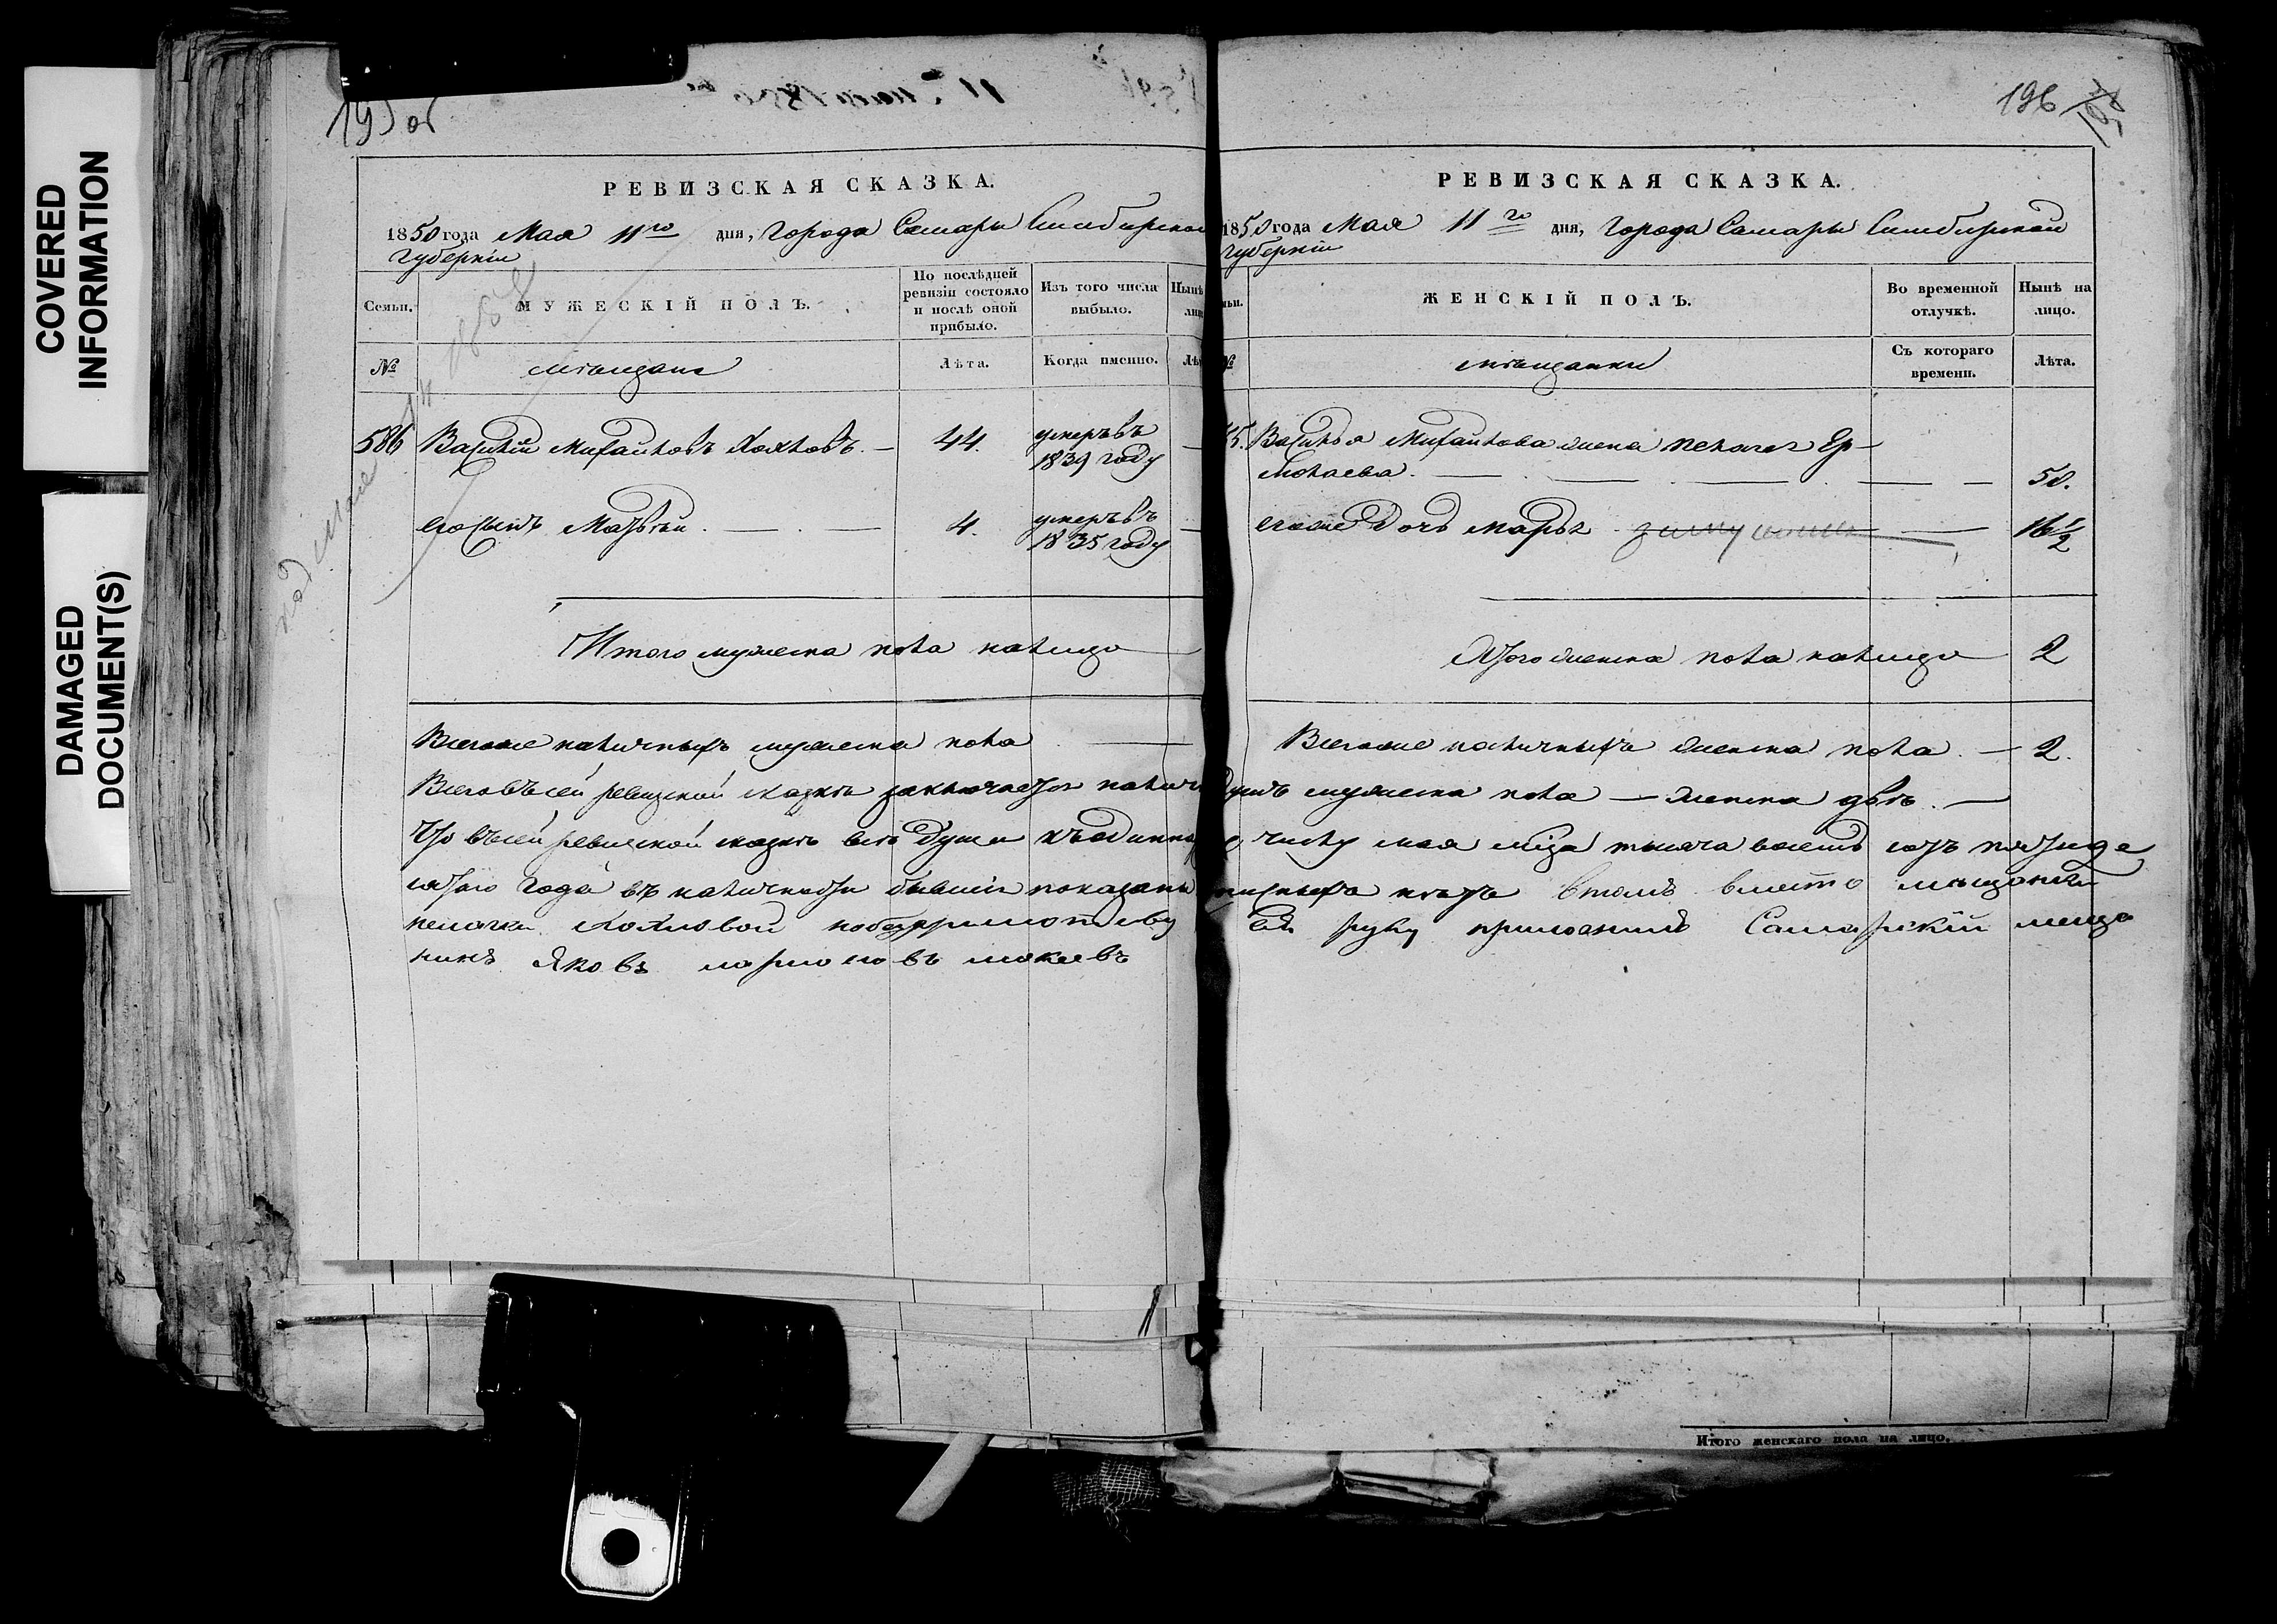 COVERED
INFORMATION
DAMAGED
DOCUMENT(S)
195 об
РЕВИЗСКАЯ СКАЗКА.
1850 года Мая 11го дня, Города Самары Симбирской
Губерніи
Семьи.
МУЖЕСКІЙ ПОЛЪ.
По послѣдней ревизіи состояло и послѣ оной прибыло.
Изъ того числа выбыло.
№
мѣщане
Лѣта.
Когда именно.
586 Василій Михайловъ Хохловъ. — 44. умеръ въ
1839 году
его сынъ Матвѣй. — 4. умеръ въ
1835 году
Итого мужеска пола налицо
Всегоже наличныхъ мужеска пола
196
РЕВИЗСКАЯ СКАЗКА.
1850 года Мая 11го дня, Города Самары Симбирской
Губерніи
ЖЕНСКІЙ ПОЛЪ.
Во временной отлучкѣ.
Нынѣ на лицо.
№
мѣщанки
Съ котораго времени.
Лѣта.
Василья Михайлова жена Пелагея Ер-
молаева. — 50.
его же дочь Марья 16 1/2
Итого женска пола налицо 2
Всегоже наличныхъ женска пола. — 2.
Всего въ сей ревизской сказкѣ заключается налич душъ мужеска пола — женска двѣ. —
Что въ сей ревизской сказкѣ всѣ души къ одинна числу мая мца тысяча восемь сотъ пятиде
сятаго года въ наличности бывшія показаны и нѣтъ въ томъ вместо мещанки
Пелагеи Хохловой руку приложилъ Самарскій меща
нинъ Яковъ
Итого женскаго пола на лицо.